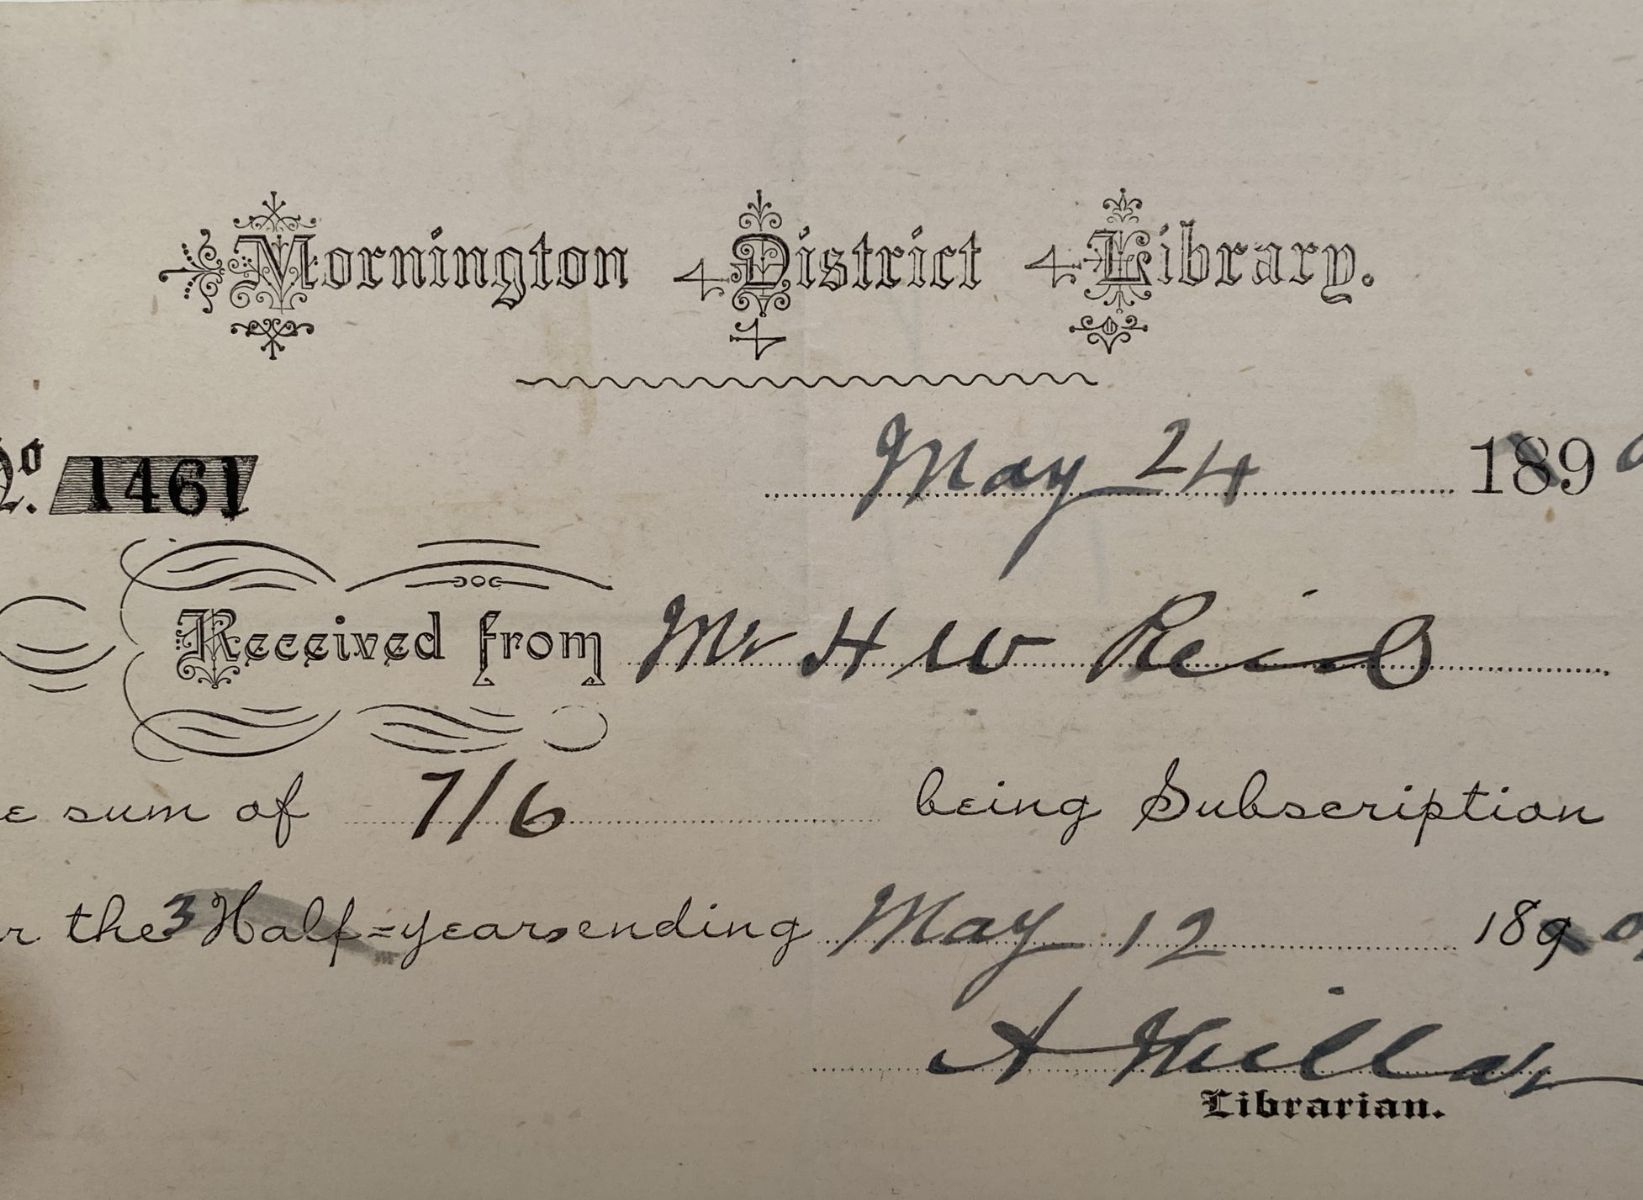 Mornington District Library.
No. 1461
May 24 189
Received from Mr H W Reid
e sum of 7/6 being Subscription
r the 3 Half=years ending May 12 189
A Millar
Librarian.